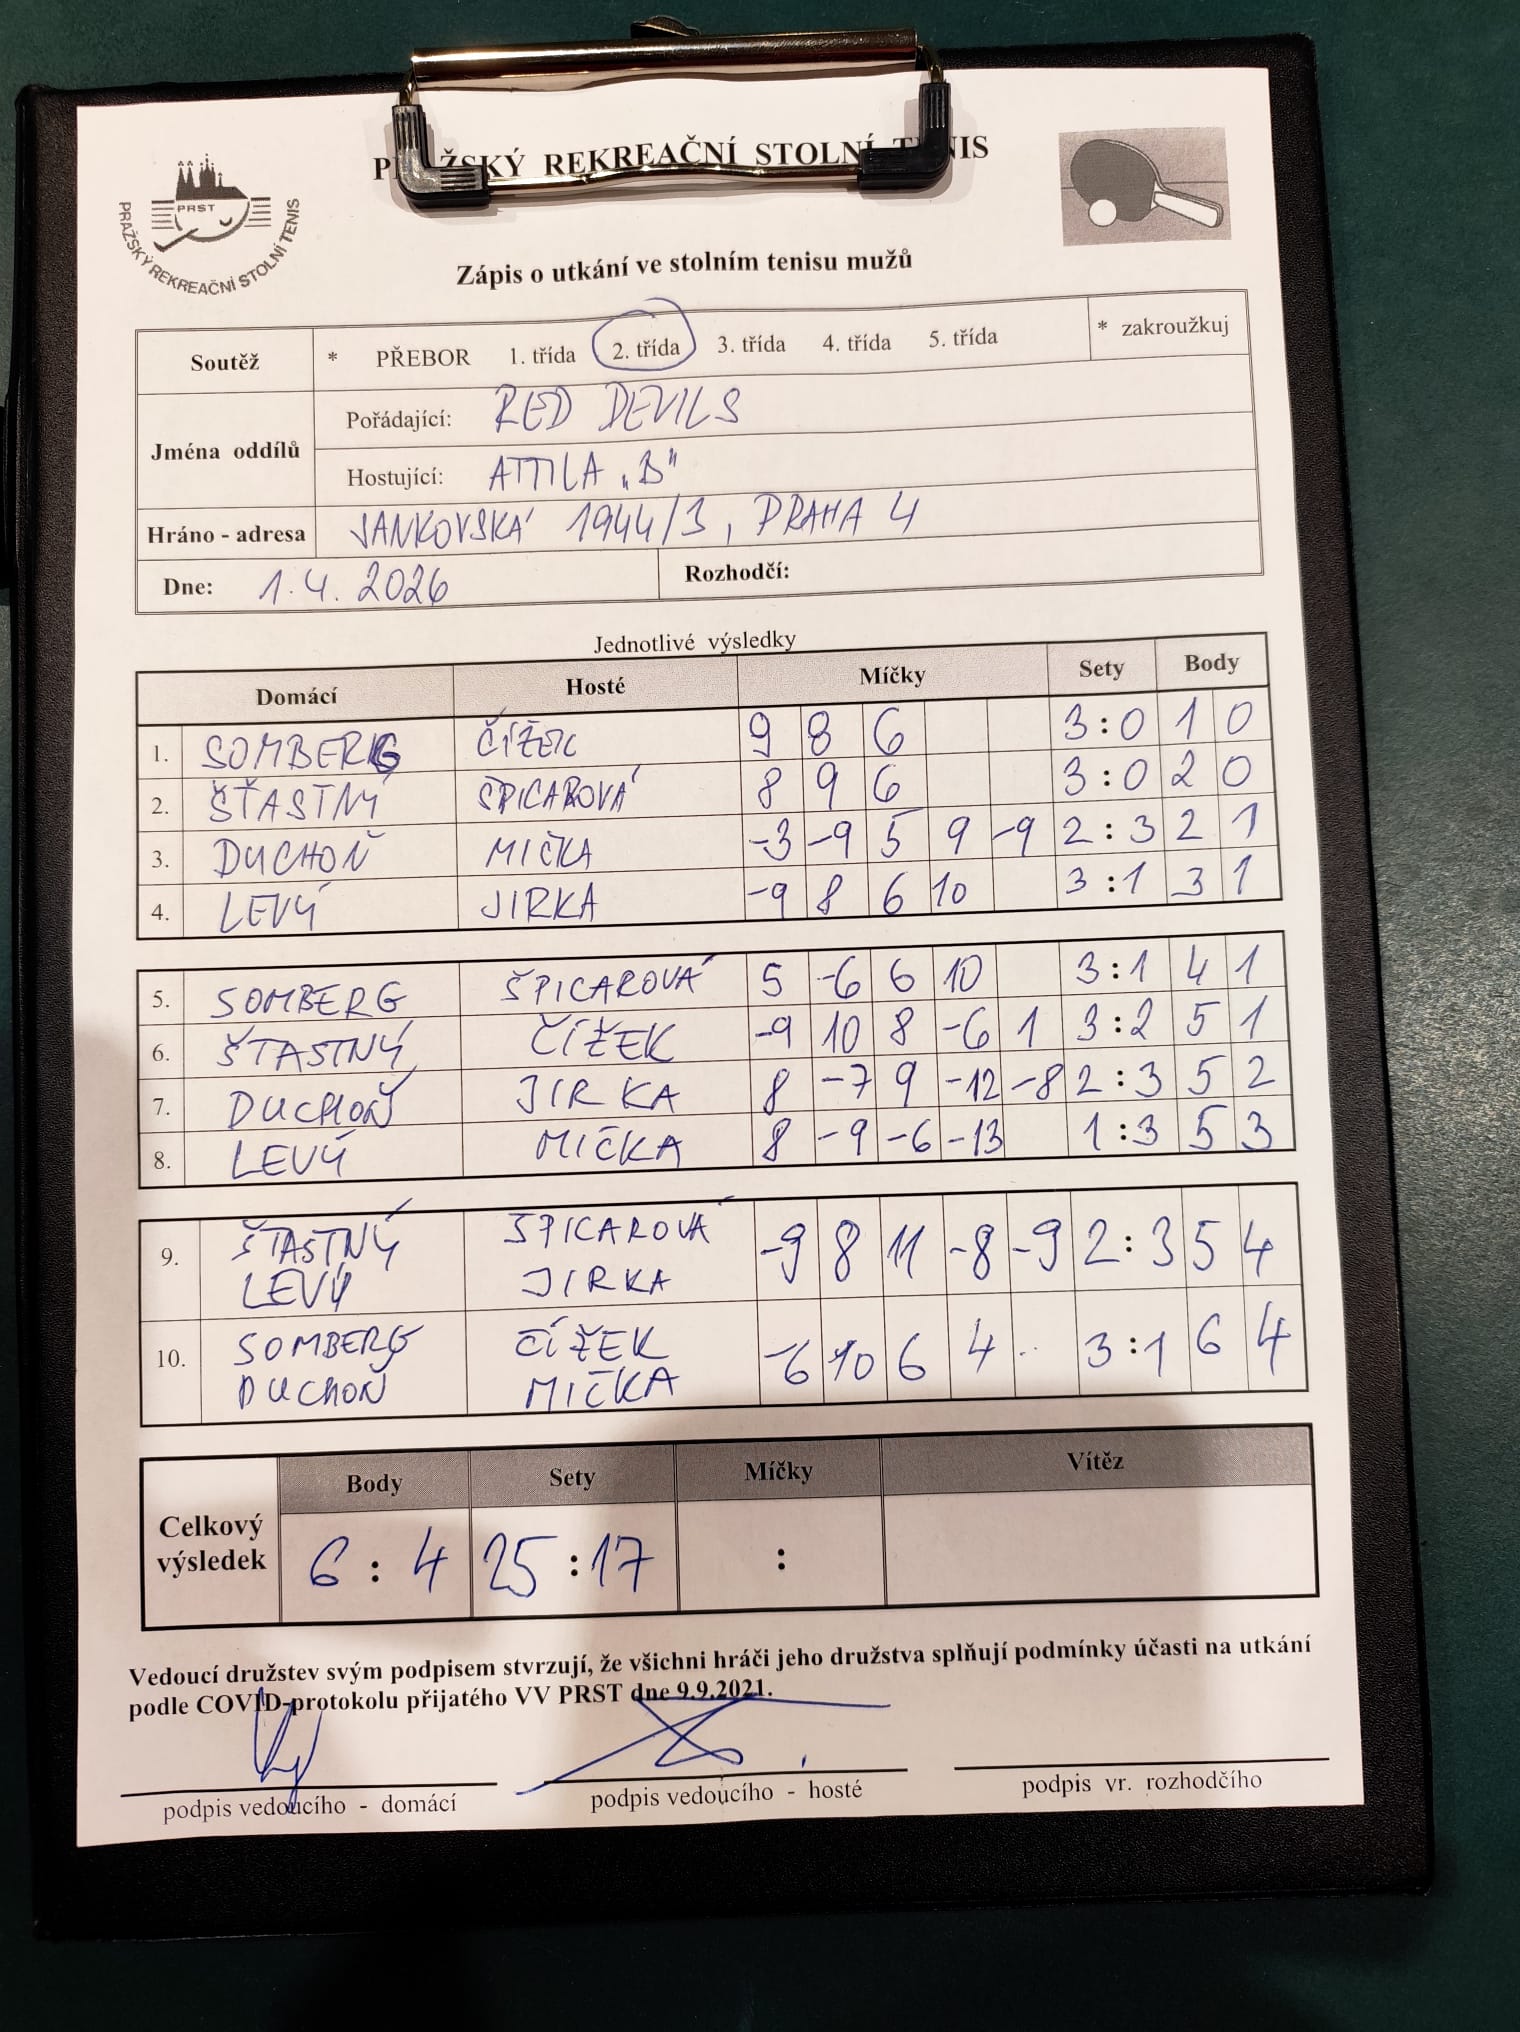 PRAŽSKÝ REKREAČNÍ STOLNÍ TENIS
PRST
PRAŽSKÝ REKREAČNÍ STOLNÍ TENIS
Zápis o utkání ve stolním tenisu mužů
Soutěž * PŘEBOR 1. třída 2. třída 3. třída 4. třída 5. třída * zakroužkuj
Jména oddílů
Pořádající: RED DEVILS
Hostující: ATTILA „B"
Hráno - adresa JANKOVSKÁ 1944/3, PRAHA 4
Dne: 1.4.2026 Rozhodčí:
Jednotlivé výsledky
Domácí Hosté Míčky Sety Body
1. SOMBERG ČÍŽEK 9 8 6 3:0 1 0
2. ŠŤASTNÝ ŠPICAROVÁ 8 9 6 3:0 2 0
3. DUCHOŇ MIČKA -3 -9 5 9 -9 2:3 2 1
4. LEVÝ JIRKA -9 8 6 10 3:1 3 1
5. SOMBERG ŠPICAROVÁ 5 -6 6 10 3:1 4 1
6. ŠTASTNÝ ČÍŽEK -9 10 8 -6 1 3:2 5 1
7. DUCHOŇ JIRKA 8 -7 9 -12 -8 2:3 5 2
8. LEVÝ MIČKA 8 -9 -6 -13 1:3 5 3
9. ŠTASTNÝ ŠPICAROVÁ -9 8 11 -8 -9 2:3 5 4
LEVÝ JIRKA
10. SOMBERG ČÍŽEK -6 10 6 4 3:1 6 4
DUCHOŇ MIČKA
Celkový výsledek
Body Sety Míčky Vítěz
6 : 4 25 : 17 :
Vedoucí družstev svým podpisem stvrzují, že všichni hráči jeho družstva splňují podmínky účasti na utkání
podle COVID-protokolu přijatého VV PRST dne 9.9.2021.
podpis vedoucího - domácí podpis vedoucího - hosté podpis vr. rozhodčího